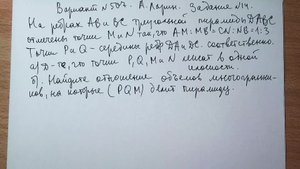 Вариант №303. А. Ларин. Задание №14.
На ребрах AB и BC треугольной пирамиды DABC
отмечены точки M и N так, что AM:MB = CN:NB = 1:3
Точки P и Q - середины ребер DA и DC соответственно.
а) Д-ть, что точки P, Q, M и N лежат в одной
плоскости.
б) Найдите отношение объемов многогранни-
ков, на которые (PQM) делит пирамиду.